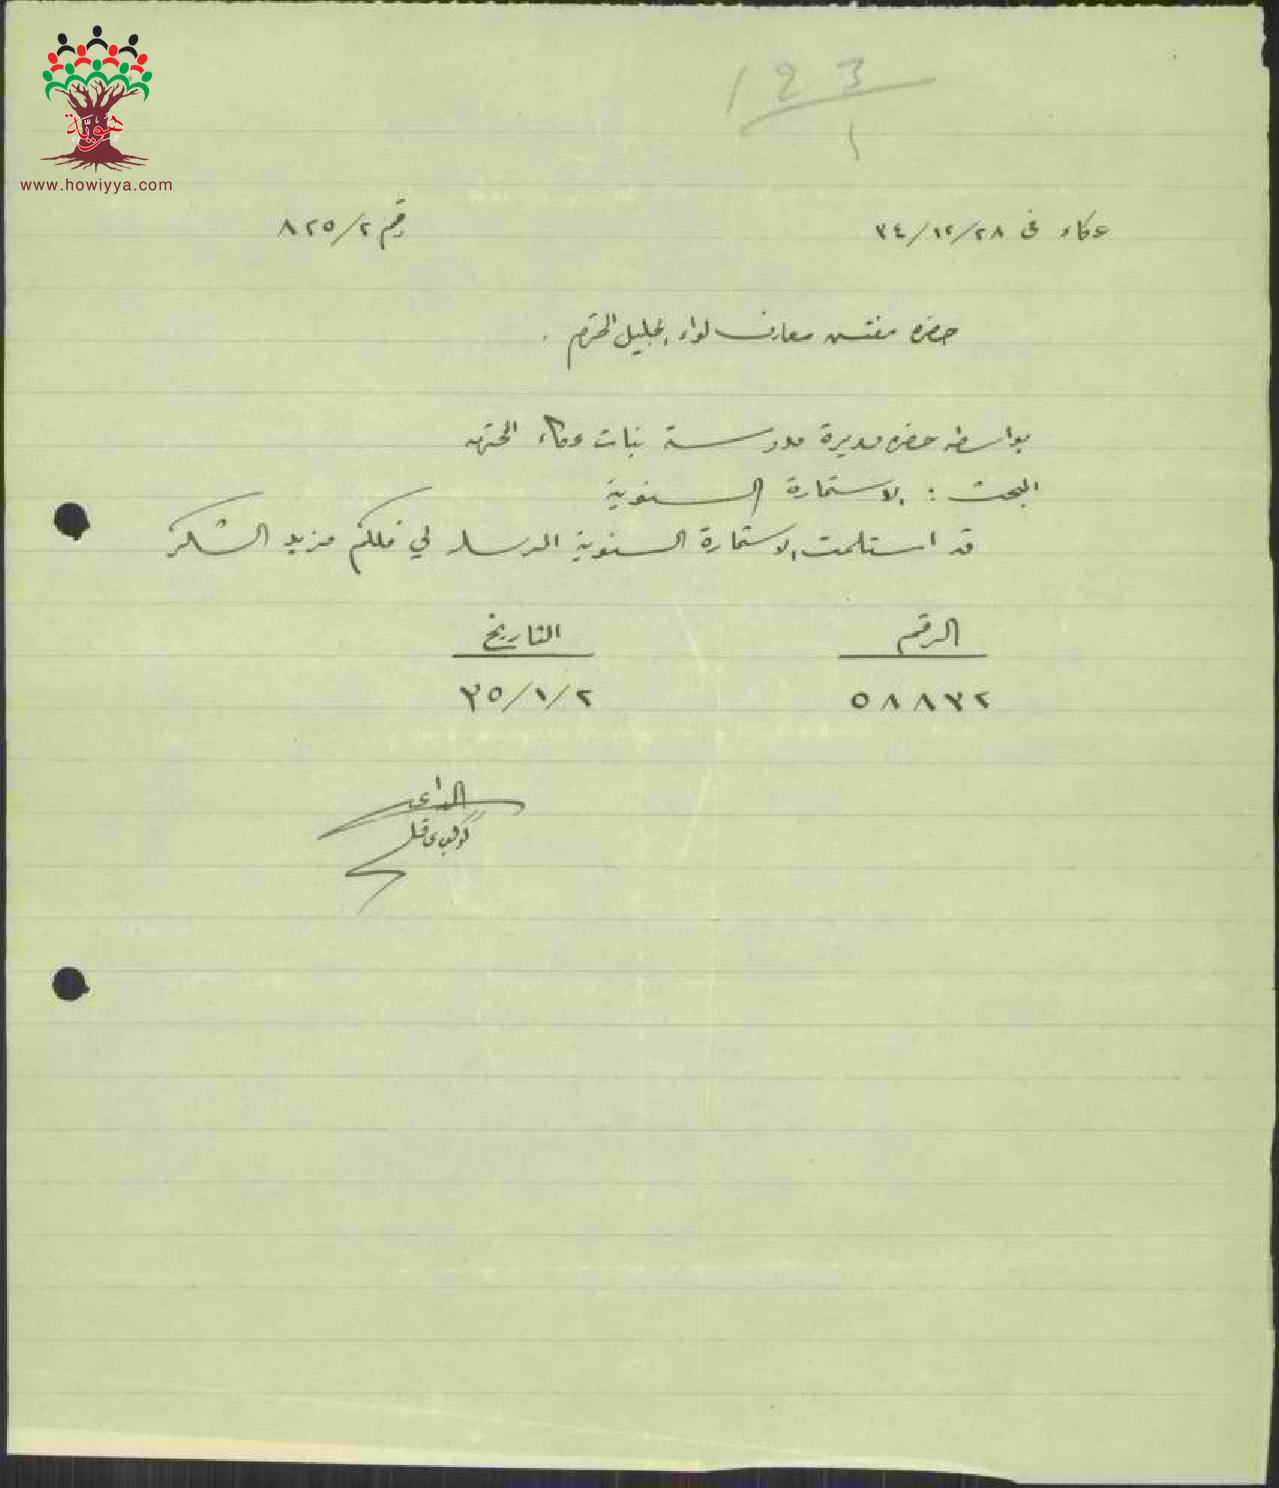 هوية
www.howiyya.com
123
1
عكاء في ٢٨/١٢/٣٤ رقم ٨٢٥/٢
حضرة مفتش معارف لواء الجليل المحترم .
بواسطة حضرة مديرة مدرسة بنات عكاء المحترمه
البحث : الاستمارة السنوية
قد استلمت الاستمارة السنوية المرسلة لي فلكم مزيد الشكر
الرقم التاريخ
٥٨٨٣٢ ٣٥/١/٢
الداعي
كوكب